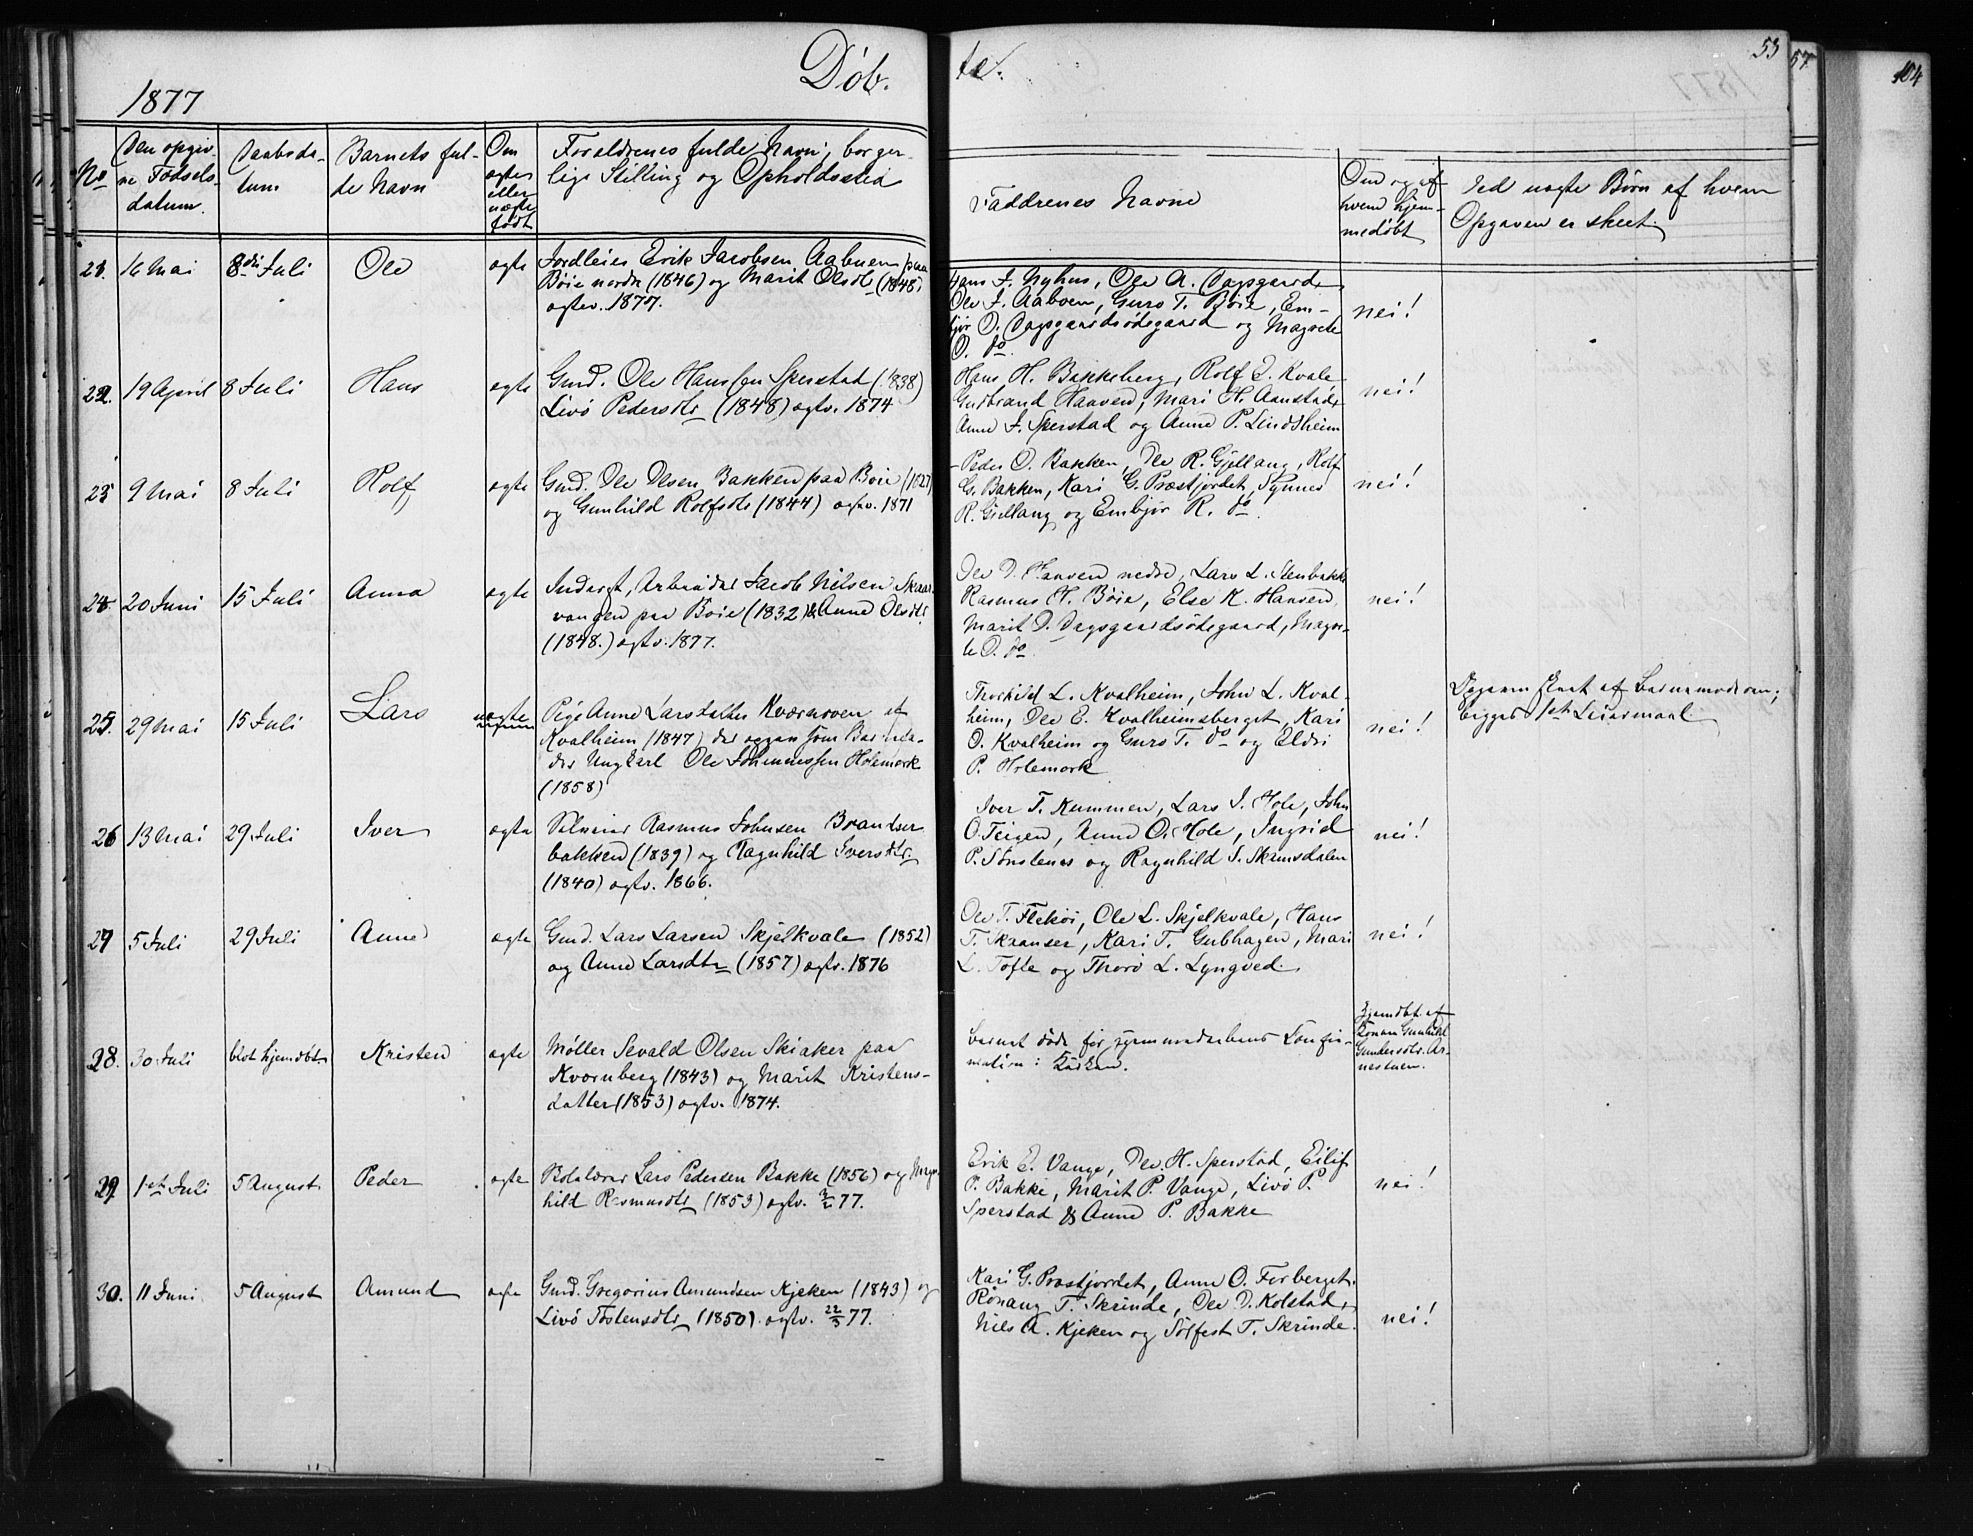 Døb. te.
53
57
104
1877
No
Den opgiv-
ne Fødsels-
datum.
Daabsda-
tum
Barnets ful-
de Navn
Om
ægte
eller
uægte
født
Forældrenes fulde Navn, borger-
lige Stilling og Opholdssted
Faddrenes Navne
Om og af
hvem hjem-
medøbt
Ved uægte Børn af hvem
Opgaven er skeet
21. 16 Mai 8de Juli Ole ægte Jordleier Erik Jacobsen Aabuen paa
Bøie nordre (1846) og Marit Olsdtr (1848)
ægtev. 1877.
Hans J. Nyhus, Ole A. Dagsgaard,
Ole J. Aaboen, Guro T. Bøie, Em-
bjør O. Dagsgaardsødegaard og Magnele
O. do.
nei!
22. 19 April 8 Juli Hans ægte Gmd. Ole Hanssen Sperstad (1838)
Livø Pedersdtr (1848) ægtv. 1874
Hans H. Bakkeberg, Rolf E. Kvale
Gudbrand Haaven, Mari H. Aanstad,
Anne J. Sperstad og Anne P. Lindsheim
nei!
23 9 Mai 8 Juli Rolf ægte Gmd. Ole Olsen Bakken paa Bøie (1827)
og Gunhild Rolfsdtr (1844) ægtv. 1871
Peder O. Bakken, Ole R. Gjellang, Rolf
G. Bakken, Kari G. Præstjordet, Synnev
R. Gjellang og Embjør R. do.
nei!
24 20 Juni 15 Juli Anna ægte Inderst, Arbeider Jacob Nilsen Skaar-
vangen paa Bøie (1832) & Anne Olsdtr
(1848.) ægtv. 1877.
Ole D. Hansen nedre, Lars L. Stenbakke
Rasmus H. Bøie, Else K. Hansen,
Marit O. Dagsgaardsødegaard, Magne-
le O. do
nei!
25. 29 Mai 15 Juli Lars uægte Pige Anne Larsdatter Kværnoven af
Kvalheim (1847) der opgav som Barnefa-
der Ungkarl Ole Johannessen Holemork
(1858)
Thorkild L. Kvalheim, John L. Kval-
heim, Ole E. Kvalheimsberget, Kari
O. Kvalheim og Guro T. do og Eldri
P. Holemork
nei!
Opgaven skeet af Barnemoderen;
begges 1ste Leiermaal
26 13 Mai 29 Juli Iver ægte Selveier Rasmus Johnsen Brandser-
bakken (1839) og Ragnhild Iversdtr
(1840) ægtv. 1866.
Iver T. Kummen, Lars I. Hole, John
O. Teigen, Anne O. Hole, Ingrid
P. Sønstenes og Ragnhild S. Skamsdalen
nei!
27 5 Juli 29 Juli Anne ægte Gmd. Lars Larsen Skjelkvale (1852)
og Anne Larsdtr (1857) ægtv. 1876
Ole T. Flekøi, Ole L. Skjelkvale, Hans
T. Skaanser, Kari T. Gubhagen, Mari
L. Tofte og Thorø L. Lyngved.
nei!
28. 30 Juli blot hjemdøbt Kristen ægte Møller Sevald Olsen Skiaker paa
Kværnberg (1843) og Marit Kristens-
datter (1853) ægtv. 1874.
Barnet døde før Hjemmedaabens Confir-
mation i Kirken.
Hjemdøbt af
Konen Gunhild
Gundersdtr. Ar-
nestuen.
29 1ste Juli 5 August Peder ægte Skolelærer Lars Pedersen Bakke (1856) og Magn-
hild Rasmusdtr (1853) ægtv. 2/2 77.
Erik E. Vange, Ole H. Sperstad, Eilif
P. Bakke, Marit P. Vange, Livø P.
Sperstad & Anne P. Bakke
nei!
30. 11 Juni 5 August Amund ægte Gmd. Gregorius Amundsen Kjeken (1843) og
Livø Tostensdtr (1850) ægtv. 22/3 77.
Kari G. Præstjordet, Anne O. Forberget,
Rønnaug T. Skrinde, Ole O. Kolstad,
Nils A. Kjeken og Sølfest T. Skrinde.
nei!